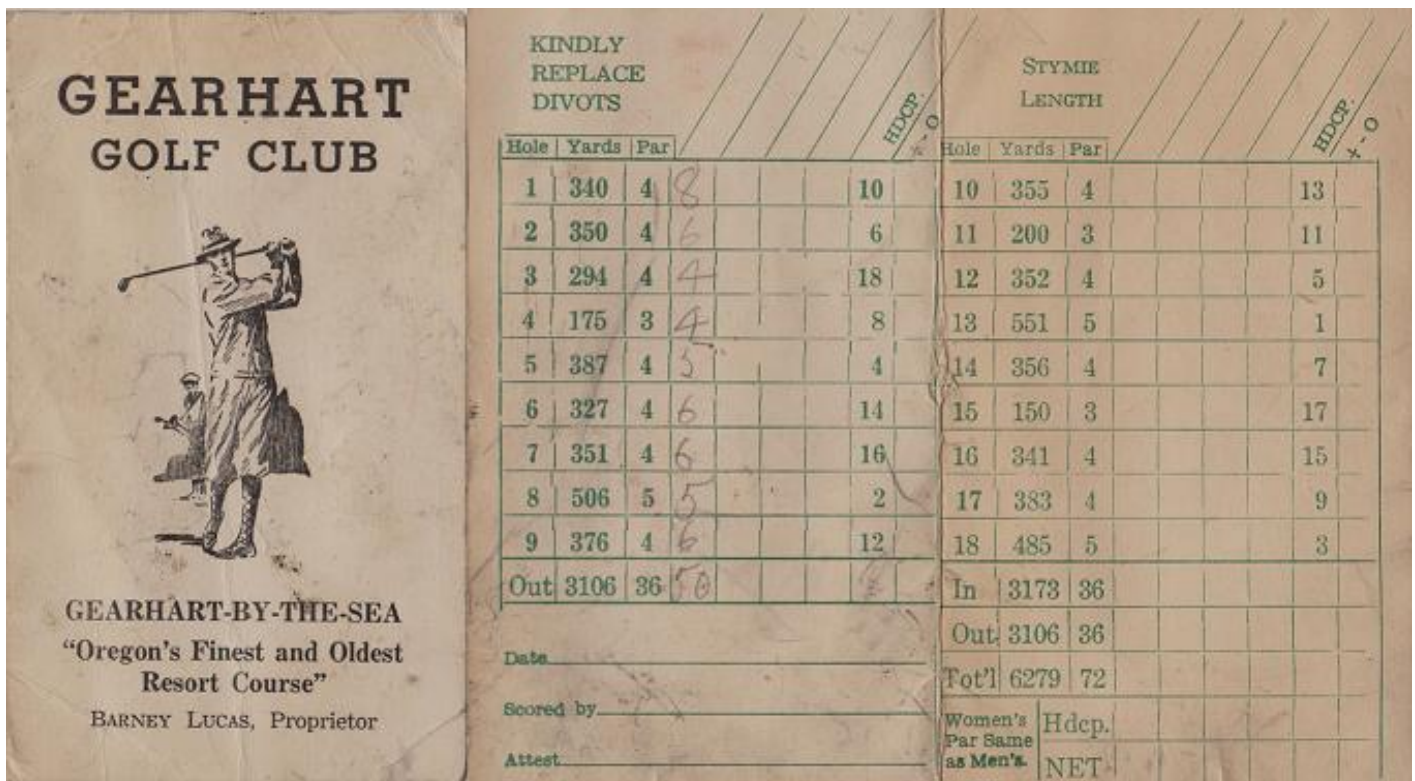 GEARHART
GOLF CLUB
GEARHART-BY-THE-SEA
“Oregon's Finest and Oldest
Resort Course”
BARNEY LUCAS, Proprietor
KINDLY
REPLACE
DIVOTS
HDCP.
+ - O
Hole Yards Par
1 340 4 8 10
2 350 4 6 6
3 294 4 4 18
4 175 3 4 8
5 387 4 5 4
6 327 4 6 14
7 351 4 6 16
8 506 5 5 2
9 376 4 6 12
Out 3106 36 50
Date
Scored by
Attest
STYMIE
LENGTH
HDCP.
+ - O
Hole Yards Par
10 355 4 13
11 200 3 11
12 352 4 5
13 551 5 1
14 356 4 7
15 150 3 17
16 341 4 15
17 383 4 9
18 485 5 3
In 3173 36
Out 3106 36
Tot'l 6279 72
Women's
Par Same
as Men's.
Hdcp.
NET